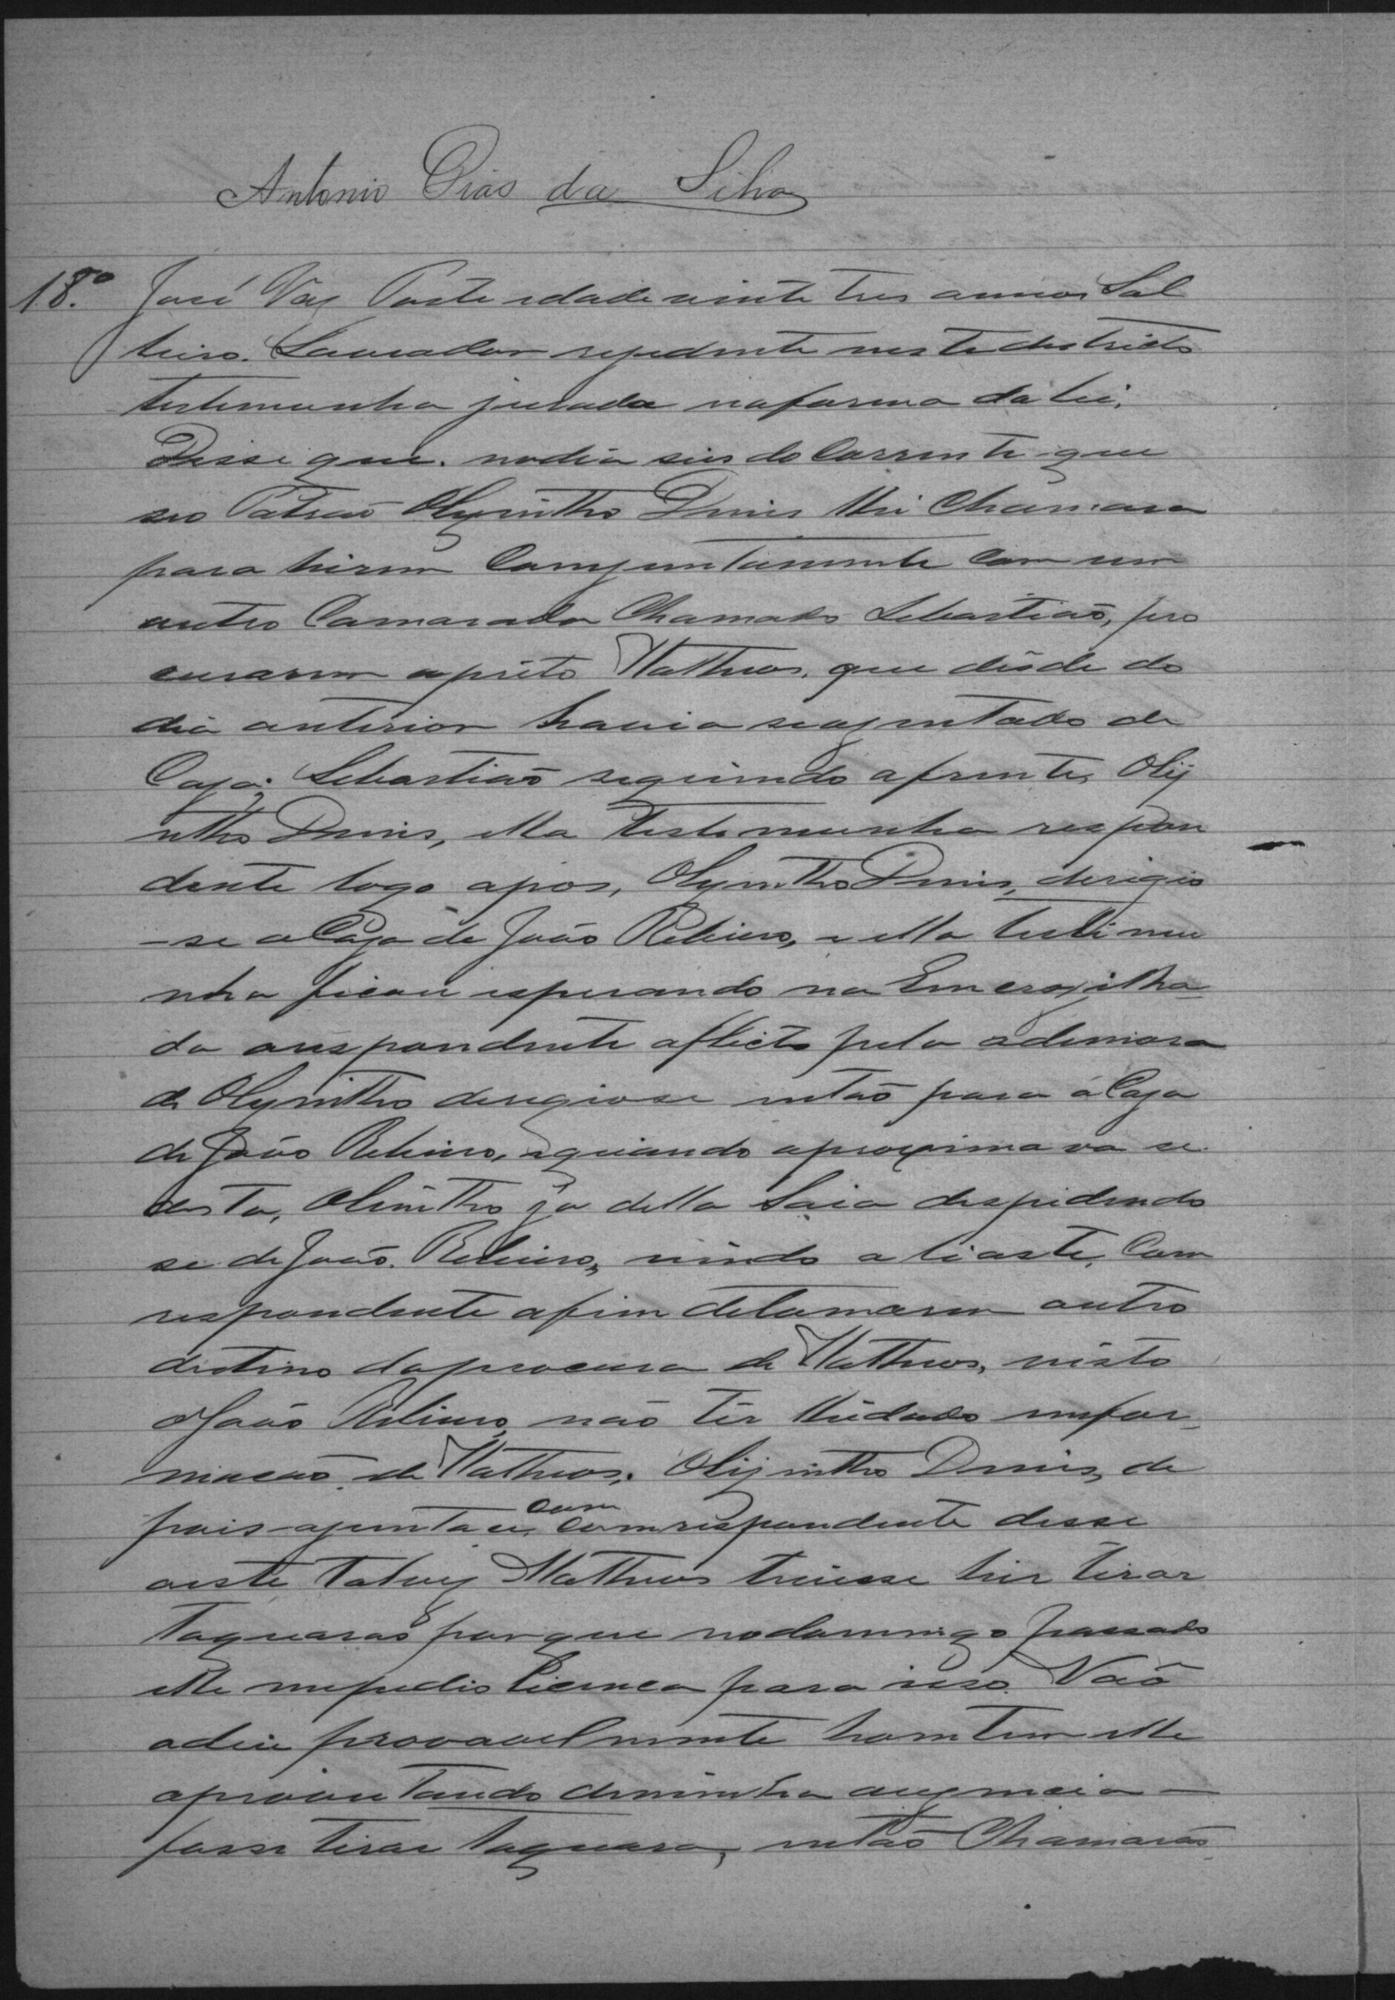 Antonio Dias da Silva
18.º José Vaz Poste idade vinte tres annos Sol
teiro. Lavrador rezedente neste destricto
testemunha jurada naforma da lei,
Disse que. nodia seis do Corrente que
seo Patrão Olyntho Dinis lhi Chamara
para hirem Comjuntamente com um
outro Camarada Chamado Sebastião, pro
curarem opreto Matheos, que desde do
dia anterior havia seauzentado de
Caza; Sebastião seguindo afrente, Oly
ntho Dinis, ella testemunha respon
dente logo apos, Olyntho Dinis, derigio
-se a Caza de João Ribeiro, e ella testimu
nha ficou esperando na Emcrozilha
da orespondente aflicto pela ademora
de Olyntho deregiose então para a Caza
de João Ribeiro, equando aproximava se
desta, Olintho ja della Saia despidindo
se de João Ribeiro, vindo a ti aste, Com
respondente afim detomarem outro
destino daprocura de Matheos, visto
o João Ribeiro não ter lhe dado imfor
macão de Matheos. Olyintho Dinis, de
pois ajuntace com Com respondente disse
aeste talvez Matheos tivesse hir tirar
Taquaras porque nodomingo passado
elle mepedio licenca para isso. Não
odeu provavelmente hontem elle
aproveitando deminha auzencia
fosse tirar taquara, então Chamarão